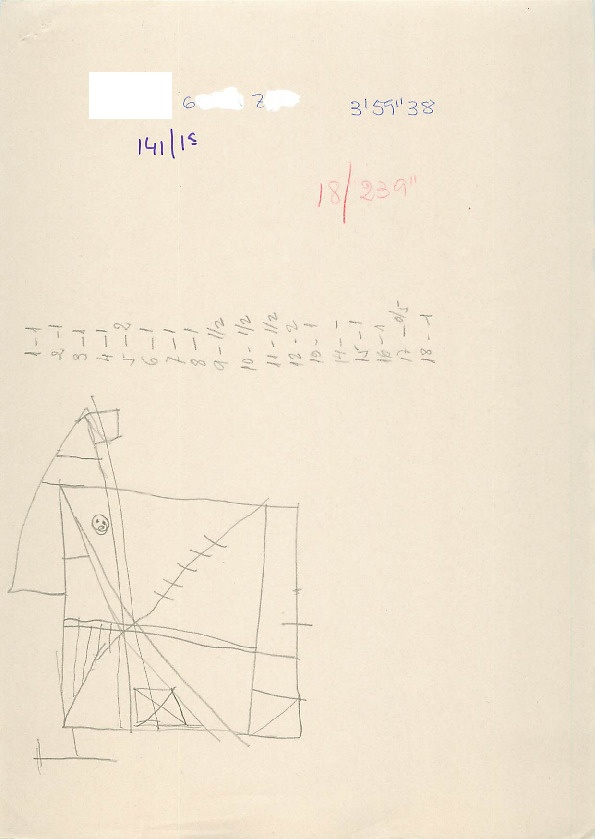 6 7 3'59"38
141/1s
18/239"
1 - 1
2 - 1
3 - 1
4 - 1
5 - 2
6 - 1
7 - 1
8 - 1
9 - 1/2
10 - 1/2
11 - 1/2
12 - 2
13 - 1
14 - -
15 - 1
16 - 1
17 - 0/5
18 - 1